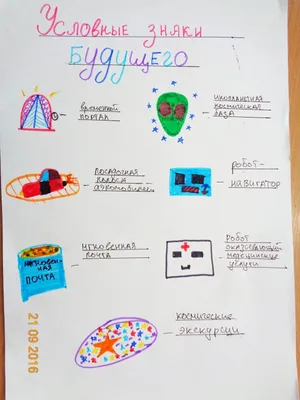 Условные знаки
Будущего
временной
портал
инопланетная
космическая
база
посадочная
полоса
аэромобилей
робот-
навигатор
мгновенная
почта
мгновен-
ная
почта
робот
оказывающий
медицинские
услуги
космические
экскурсии
21 09 2016